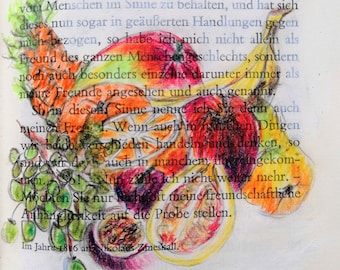 vom Menschen im Sinne zu behalten, und hat sich
dieses nun sogar in geäußerten Handlungen gegen
mich bezogen, so habe ich mich nicht allein als
Freund des ganzen Menschengeschlechts, sondern
noch auch besonders einzelne darunter immer als
meine Freunde angesehen und auch genannt.
In diesem Sinne nenne ich Sie dann auch
meinen Freund. Wenn auch in manchen Dingen
wir beide verschieden handeln und denken, so
sind wir doch auch in manchem
men. Ich nicht weiter mehr. –
Möchten Sie nur recht oft meine freundschaftliche
Anhänglichkeit auf die Probe stellen.
Im Jahre 1816 an Nikolaus Zmeskall.